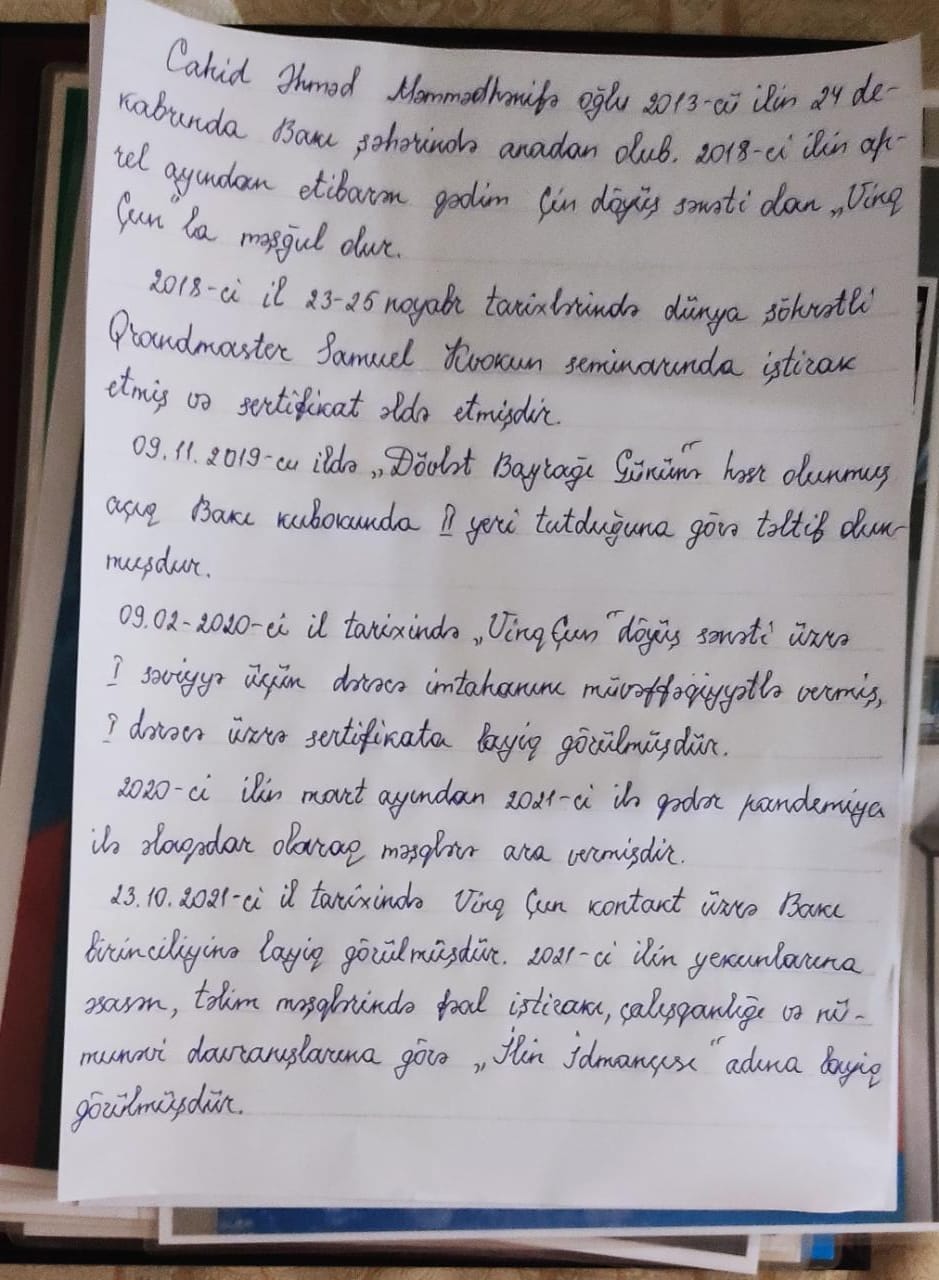 Cahid Əhməd Məmmədhənifə oğlu 2013-cü ilin 24 de-
kabrında Bakı şəhərində anadan olub. 2018-ci ilin ap-
rel ayından etibarən qədim Çin döyüş sənəti dan „Vinq
Çun" la məşğul olur.
2018-ci il 23-25 noyabr tarixlərində dünya şöhrətli
Qrandmaster Samuel Kvokun seminarında iştirak
etmiş və sertifikat əldə etmişdir.
09.11.2019-cu ildə „Dövlət Bayrağı Günün"ə həsr olunmuş
açıq Bakı kubokunda II yeri tutduğuna görə təltif olun-
muşdur.
09.02-2020-ci il tarixində „Vinq Çun" döyüş sənəti üzrə
I səviyyə üçün dərəcə imtahanını müvəffəqiyyətlə vermiş,
I dərəcə üzrə sertifikata layiq görülmüşdür.
2020-ci ilin mart ayından 2021-ci ilə qədər pandemiya
ilə əlaqədar olaraq məşqlərə ara vermişdir.
23.10.2021-ci il tarixində Vinq Çun kontakt üzrə Bakı
birinciliyinə layiq görülmüşdür. 2021-ci ilin yekunlarına
əsasən, təlim məşqlərində fəal iştirakı, çalışqanlığı və nü-
munəvi davranışlarına görə „İlin İdmançısı" adına layiq
görülmüşdür.